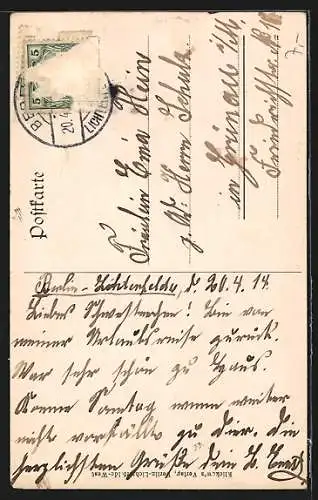 7.-
5 5
BERLIN
20.4
LICHTERF
Postkarte
Fräulein Ema Hein
z. Z: Herrn Schulz
in Grünau i/M.
Friedrichstr.
Berlin-Lichtenfelde, d. 20.4.14.
Liebes Schwesterchen! Bin von
meiner Urlaubsreise zurück.
War sehr schön zu Haus.
Komme Sonntag wenn weiter
nichts vorfällt zu dir, die
herzlichsten Grüße dein Br.
Verlag, Berlin-Lichterfelde-West